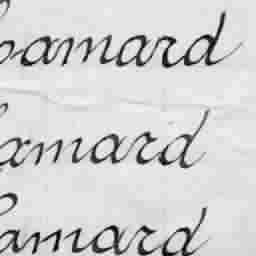 amard
amard
amard